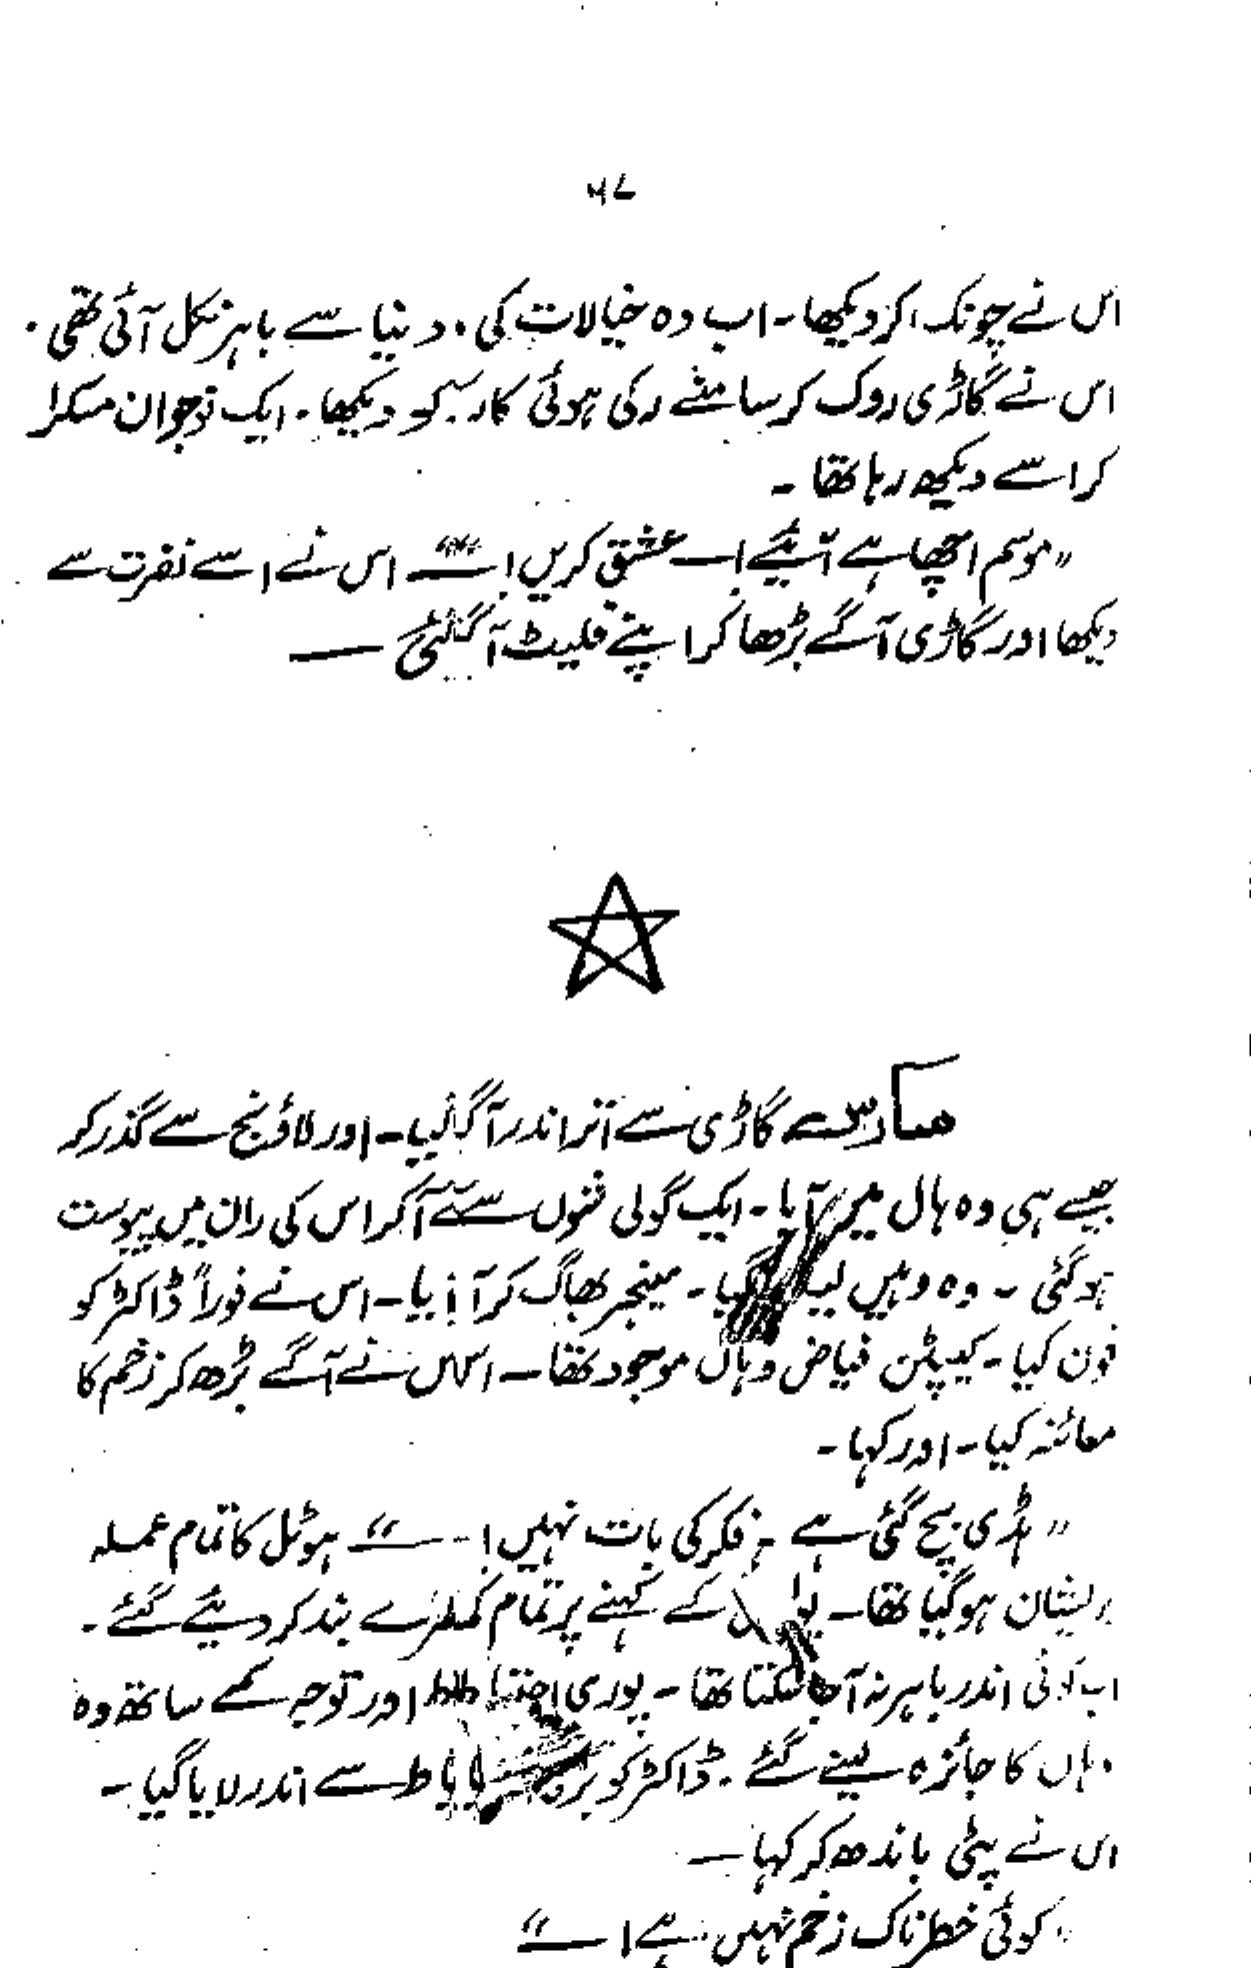 ۶۷
اس نے چونک کر دیکھا۔ اب وہ خیالات کی دنیا سے باہر نکل آئی تھی۔
اس نے گاڑی روک کر سامنے رکی ہوئی کار کو دیکھا۔ ایک نوجوان مسکرا
کر اسے دیکھ رہا تھا۔
"موسم اچھا ہے آئیے! عشق کریں!—" اس نے اسے نفرت سے
دیکھا اور گاڑی آگے بڑھا کر اپنے فلیٹ آ گئی —
گاڑی سے اتر اندر آ گیا۔ اور لاؤنج سے گذر کر
جیسے ہی وہ ہال میں آیا۔ ایک گولی شوں سے آ کر اس کی ران میں پیوست
ہو گئی۔ وہ وہیں گیا۔ مینجر بھاگ کر آیا۔ اس نے فوراً ڈاکٹر کو
فون کیا۔ کیپٹن فیاض وہاں موجود تھا۔ اس نے آگے بڑھ کر زخم کا
معائنہ کیا۔ اور کہا۔
"ہڈی بچ گئی ہے۔ فکر کی بات نہیں!—" ہوٹل کا تمام عملہ
پریشان ہو گیا تھا۔ کے کہنے پر تمام کمرے بند کر دیئے گئے۔
اب کوئی اندر باہر نہ آ جا سکتا تھا۔ پوری احتیاط اور توجہ کے ساتھ وہ
وہاں کا جائزہ لینے گئے۔ ڈاکٹر کو سے اندر لایا گیا۔
اس نے پٹی باندھ کر کہا —
"کوئی خطرناک زخم نہیں ہے! —"